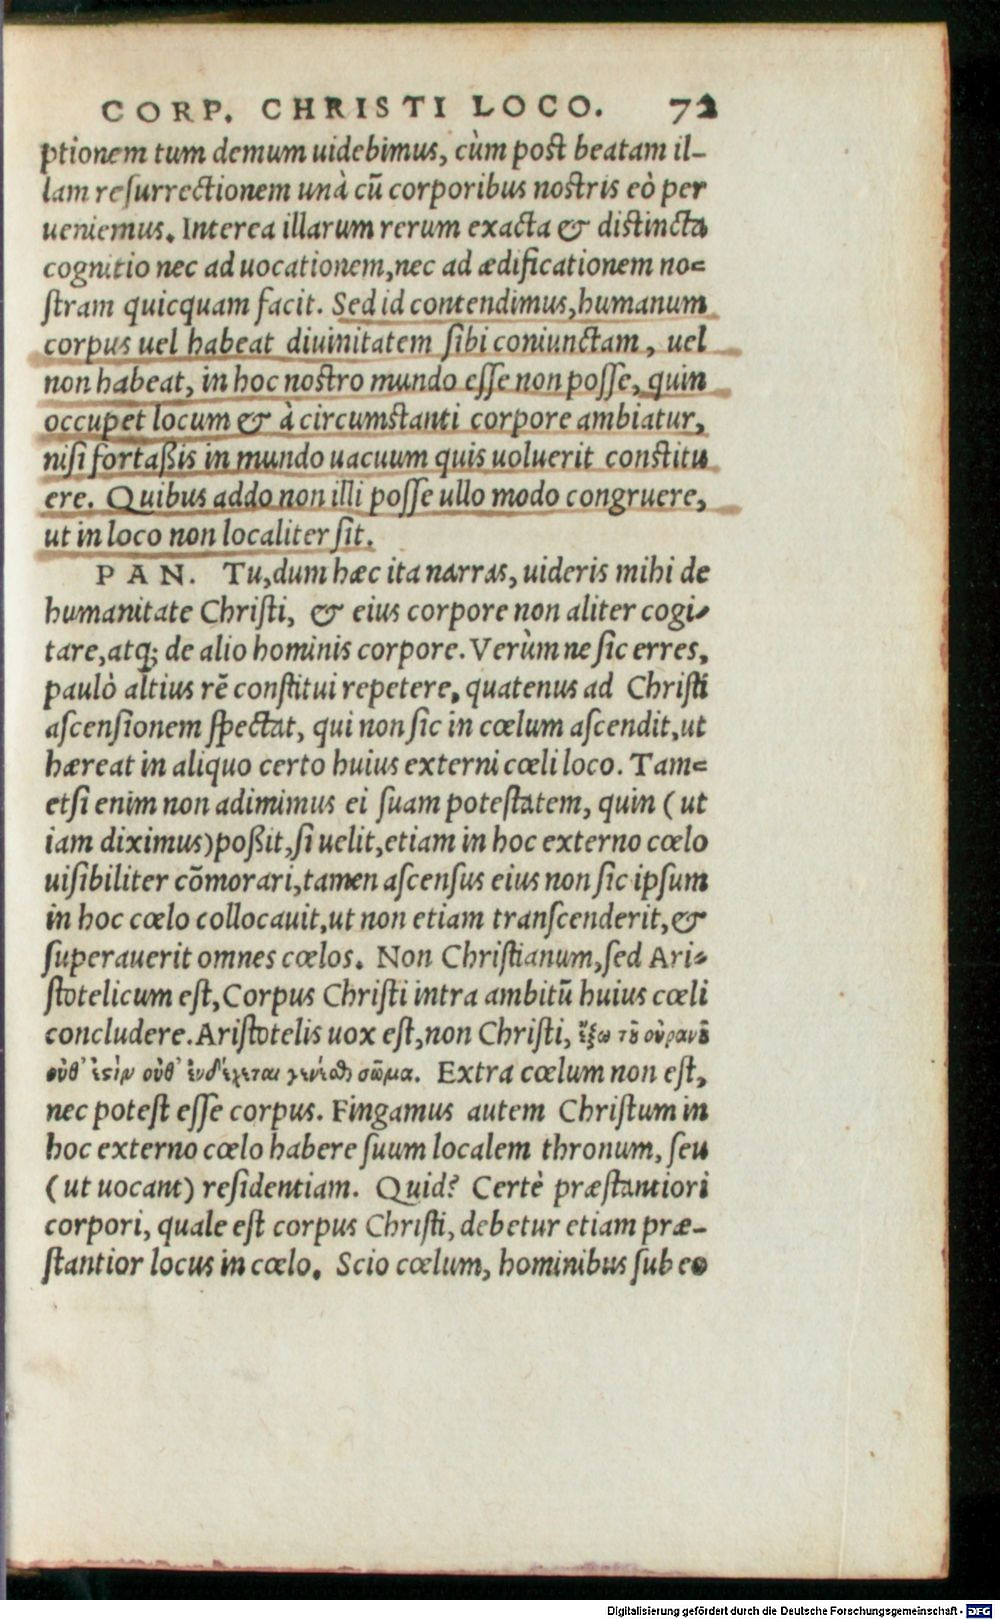 CORP. CHRISTI LOCO. 72
ptionem tum demum uidebimus, cùm post beatam il-
lam resurrectionem unà cū corporibus nostris eò per
ueniemus. Interea illarum rerum exacta & distincta
cognitio nec ad uocationem, nec ad ædificationem no=
stram quicquam facit. Sed id contendimus, humanum
corpus uel habeat diuinitatem sibi coniunctam, uel
non habeat, in hoc nostro mundo esse non posse, quin
occupet locum & à circumstanti corpore ambiatur,
nisi fortaßis in mundo uacuum quis uoluerit constitu
ere. Quibus addo non illi posse ullo modo congruere,
ut in loco non localiter sit.
PAN. Tu, dum hæc ita narras, uideris mihi de
humanitate Christi, & eius corpore non aliter cogi-
tare, atq; de alio hominis corpore. Verùm ne sic erres,
paulò altius rē constitui repetere, quatenus ad Christi
ascensionem spectat, qui non sic in cœlum ascendit, ut
hæreat in aliquo certo huius externi cœli loco. Tam=
etsi enim non adimimus ei suam potestatem, quin (ut
iam diximus) poßit, si uelit, etiam in hoc externo cœlo
uisibiliter cōmorari, tamen ascensus eius non sic ipsum
in hoc cœlo collocauit, ut non etiam transcenderit, &
superauerit omnes cœlos. Non Christianum, sed Ari-
stotelicum est, Corpus Christi intra ambitū huius cœli
concludere. Aristotelis uox est, non Christi, ἔξω τοῦ οὐρανοῦ
οὐθ' ἐστὶν οὐθ' ἐνδέχεται γενέσθαι σῶμα. Extra cœlum non est,
nec potest esse corpus. Fingamus autem Christum in
hoc externo cœlo habere suum localem thronum, seu
(ut uocant) residentiam. Quid? Certè præstantiori
corpori, quale est corpus Christi, debetur etiam præ-
stantior locus in cœlo. Scio cœlum, hominibus sub eo
Digitalisierung gefördert durch die Deutsche Forschungsgemeinschaft - DFG